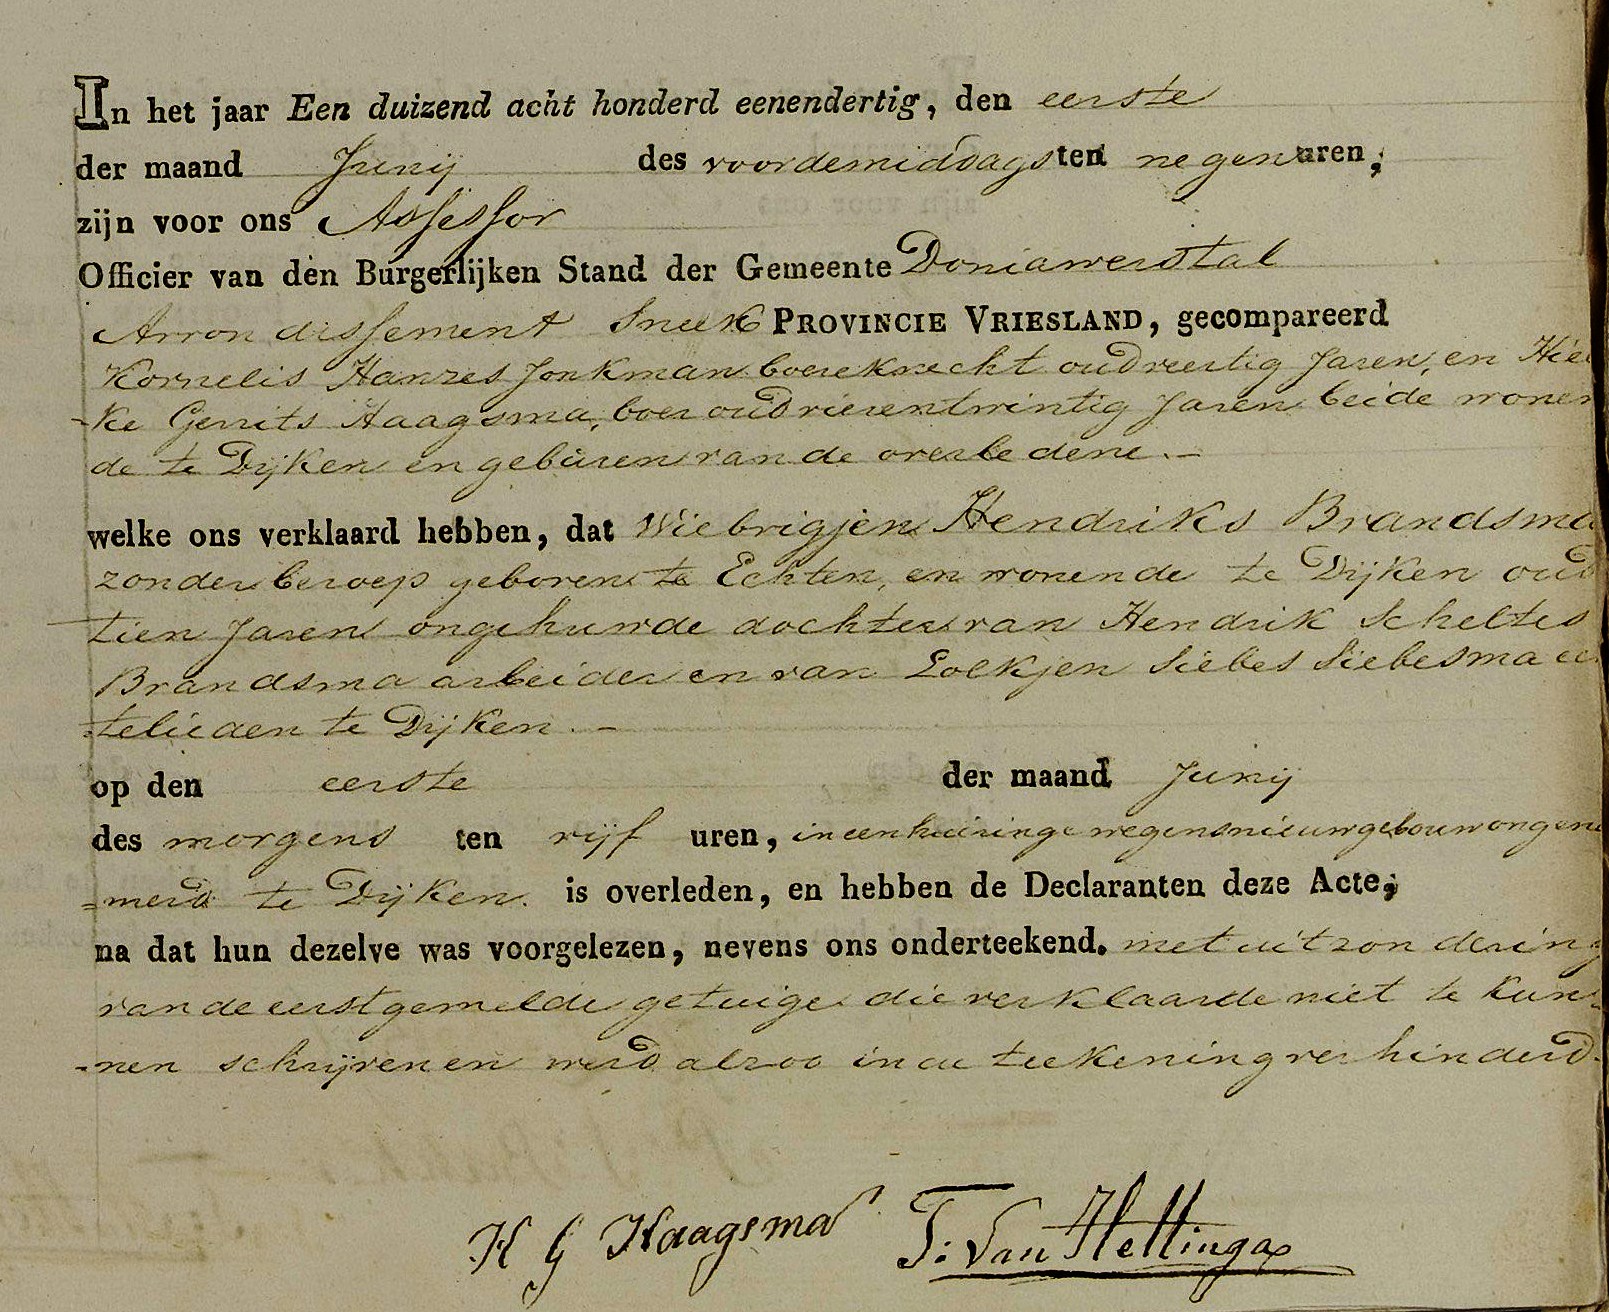 In het jaar Een duizend acht honderd eenendertig, den eerste
der maand Junij des voordemiddags ten negen uren,
zijn voor ons Assessor
Officier van den Burgerlijken Stand der Gemeente Doniawerstal
Arrondissement Sneek PROVINCIE VRIESLAND, gecompareerd
Kornelis Hanzes Jonkman boereknecht oud veertig Jaren, en Hie
-ke Gerrits Haagsma, boer oud vierentwintig Jaren beide wonen
de te Dijken en geburen van de overledene.-
welke ons verklaard hebben, dat Wiebrigjen Hendriks Brandsma
zonder beroep geboren te Echten, en wonende te Dijken oud
tien Jaren ongehuwde dochter van Hendrik Scheltes
Brandsma arbeider en van Loekjen Siebes Siebesma ec
=telieden te Dijken.-
op den eerste der maand Junij
des morgens ten vijf uren, in een huizinge wegens nieuw gebouw ongenu
=merd te Dijken. is overleden, en hebben de Declaranten deze Acte,
na dat hun dezelve was voorgelezen, nevens ons onderteekend. met uitzondering
van de eerstgemelde getuige die verklaarde niet te kun
-nen schrijven en werd alzoo in de teekening verhinderd.
H G Haagsma T: Van Hettinga